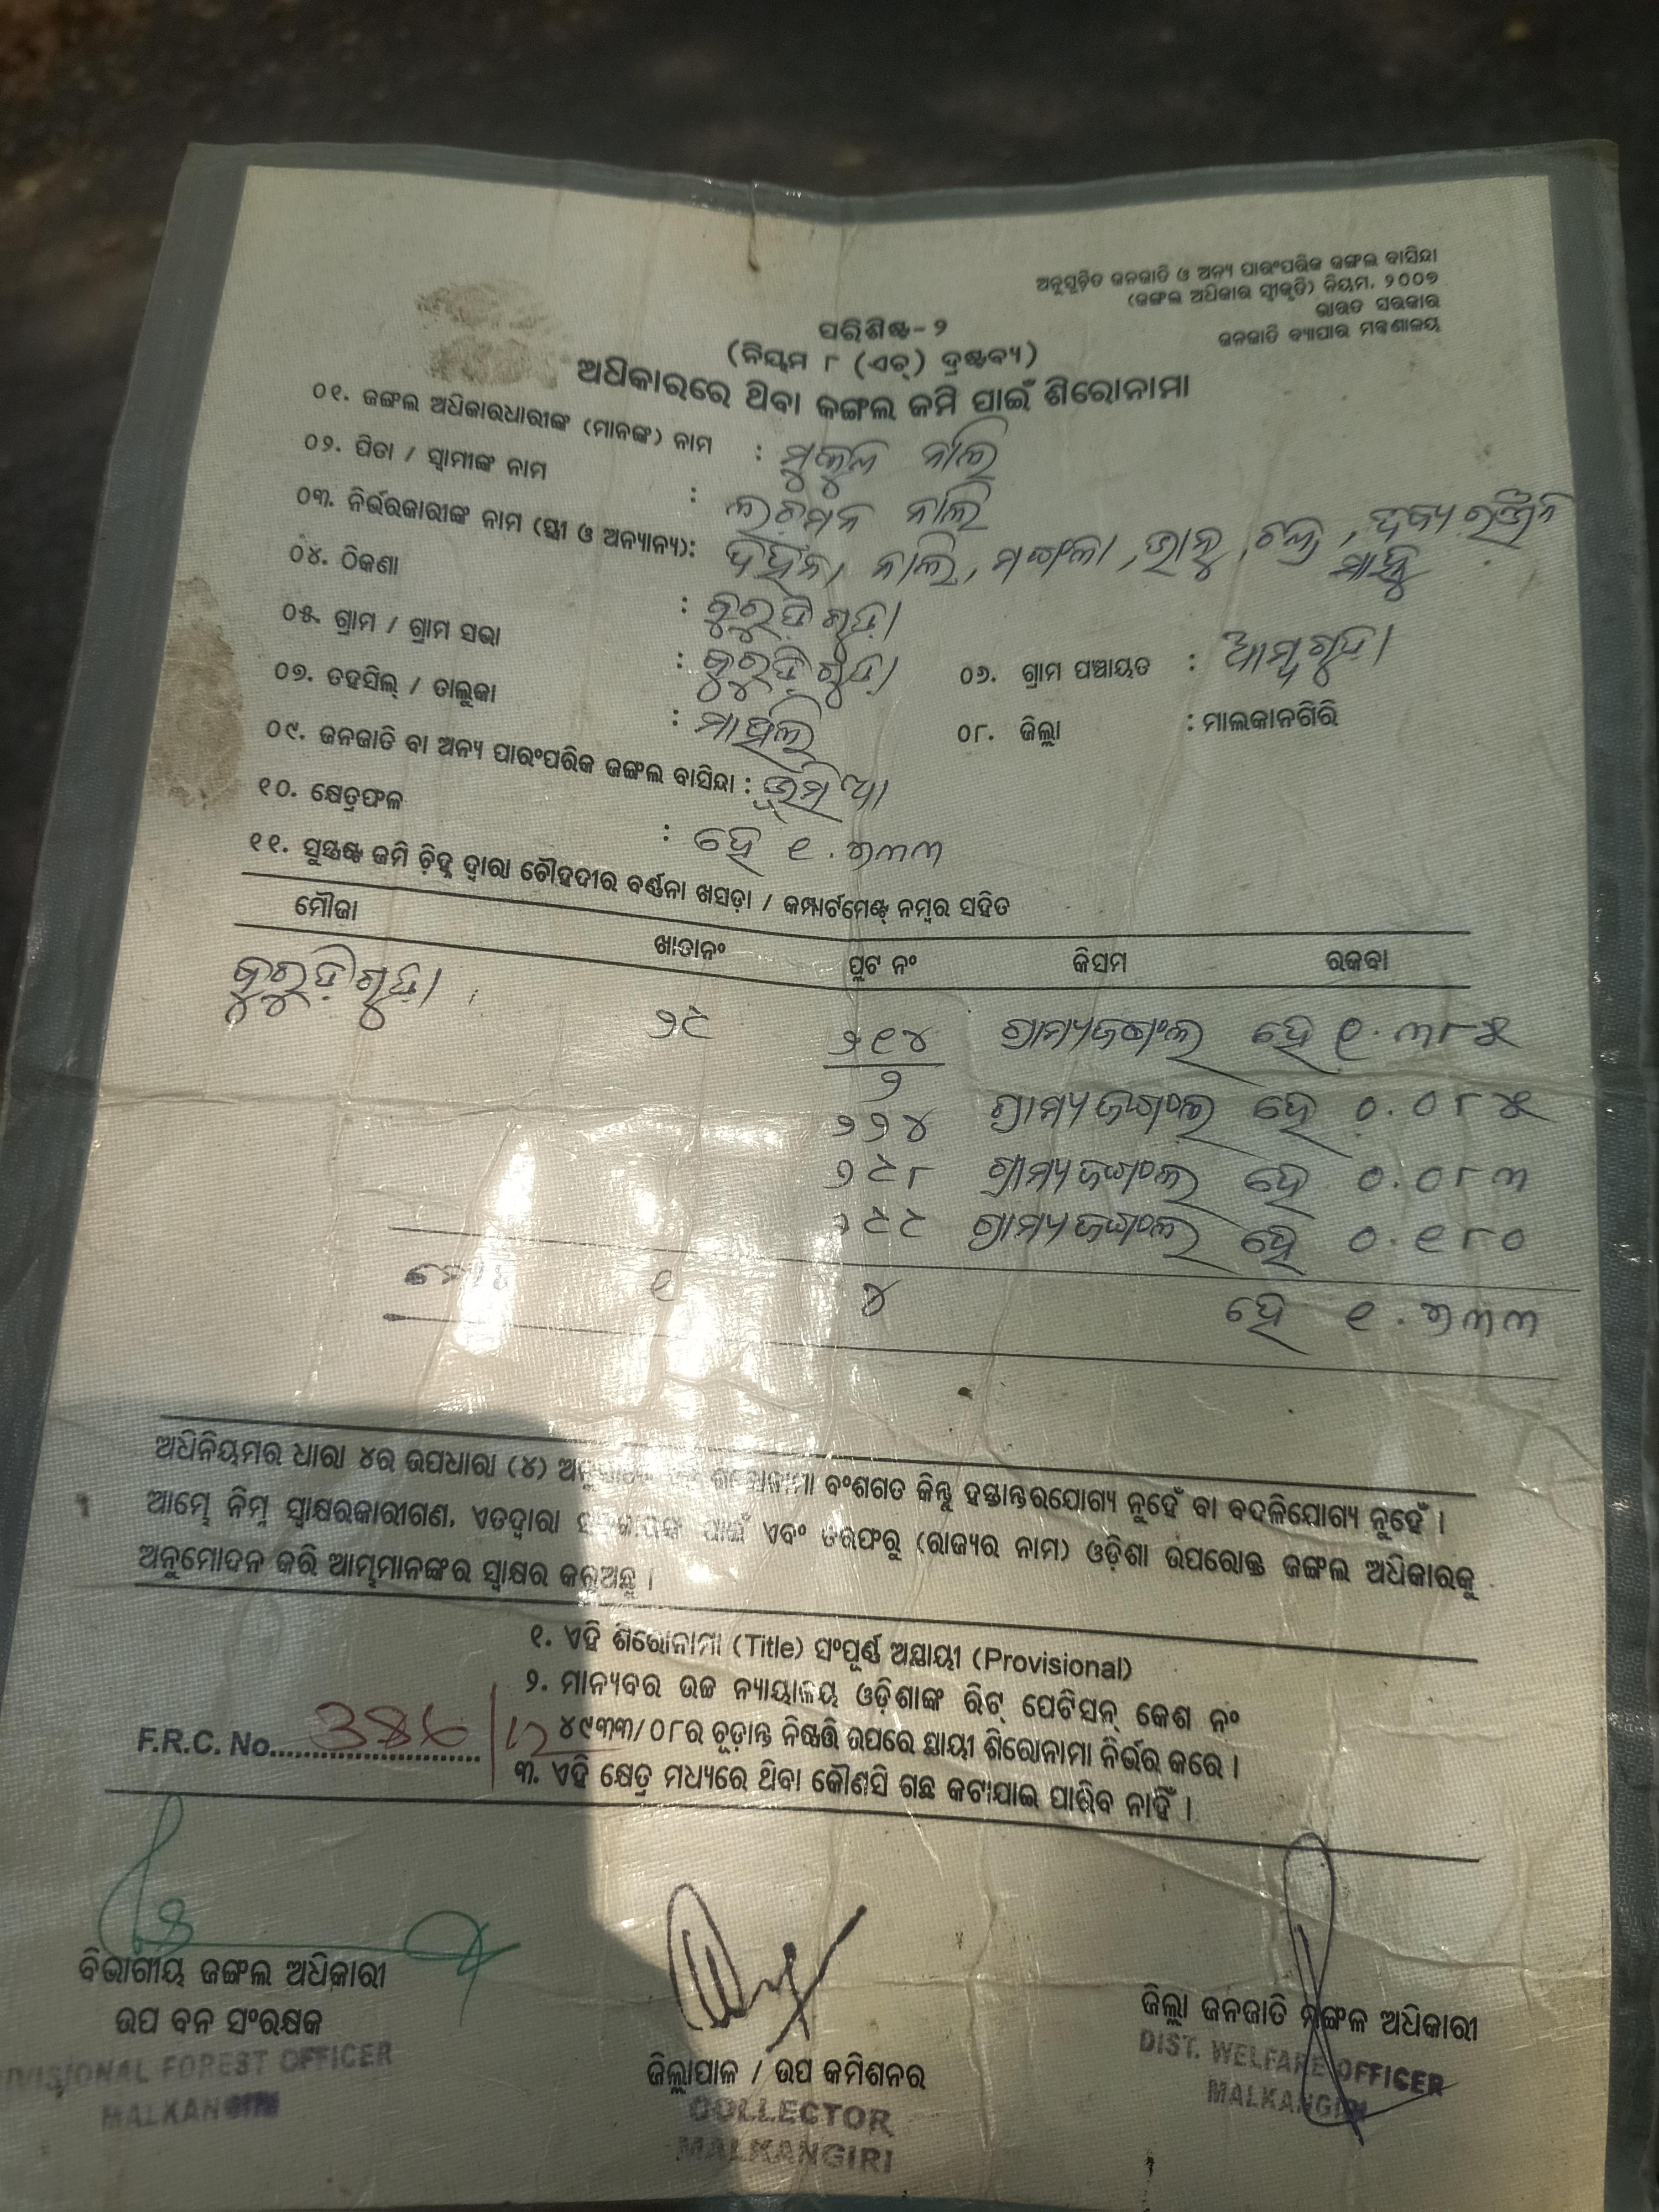 ଅନୁସୂଚିତ ଜନଜାତି ଓ ଅନ୍ୟ ପାରଂପରିକ ଜଙ୍ଗଲ ବାସିନ୍ଦା
(ଜଙ୍ଗଲ ଅଧିକାର ସ୍ୱୀକୃତି) ନିୟମ, ୨୦୦୭
ଭାରତ ସରକାର
ଜନଜାତି ବ୍ୟାପାର ମନ୍ତ୍ରଣାଳୟ
ପରିଶିଷ୍ଟ-୨
(ନିୟମ ୮ (ଏଚ୍) ଦ୍ରଷ୍ଟବ୍ୟ)
ଅଧିକାରରେ ଥିବା ଜଙ୍ଗଲ ଜମି ପାଇଁ ଶିରୋନାମା
୦୧. ଜଙ୍ଗଲ ଅଧିକାରଧାରୀଙ୍କ (ମାନଙ୍କ) ନାମ : ମୁକୁନ୍ଦ ନାଲି
୦୨. ପିତା / ସ୍ୱାମୀଙ୍କ ନାମ : ଲଚମନ ନାଲି
୦୩. ନିର୍ଭରକାରୀଙ୍କ ନାମ (ସ୍ତ୍ରୀ ଓ ଅନ୍ୟାନ୍ୟ): ନାଲି, ମଙ୍ଗଳା,
୦୪. ଠିକଣା : କୁରୁଡ଼ିଗୁଡ଼ା
୦୫. ଗ୍ରାମ / ଗ୍ରାମ ସଭା : କୁରୁଡ଼ିଗୁଡ଼ା ୦୬. ଗ୍ରାମ ପଞ୍ଚାୟତ : ଆମ୍ବଗୁଡ଼ା
୦୭. ତହସିଲ୍ / ତାଲୁକା : ମାଥିଲି ୦୮. ଜିଲ୍ଲା : ମାଲକାନଗିରି
୦୯. ଜନଜାତି ବା ଅନ୍ୟ ପାରଂପରିକ ଜଙ୍ଗଲ ବାସିନ୍ଦା : ଭୂମିଆ
୧୦. କ୍ଷେତ୍ରଫଳ : ହେ ୧.୭୩୩
୧୧. ସୁସ୍ପଷ୍ଟ ଜମି ଚିହ୍ନ ଦ୍ୱାରା ଚୌହଦୀର ବର୍ଣ୍ଣନା ଖସଡ଼ା / କମ୍ପାର୍ଟମେଣ୍ଟ୍ ନମ୍ବର ସହିତ
ମୌଜା ଖାତାନଂ ପ୍ଲଟ ନଂ କିସମ ରକବା
କୁରୁଡ଼ିଗୁଡ଼ା ୨୯ ୨୧୪/୨ ଗ୍ରାମ୍ୟଜଙ୍ଗଲ ହେ ୧.୩୮୫
୨୨୪ ଗ୍ରାମ୍ୟଜଙ୍ଗଲ ହେ ୦.୦୮୫
୨୯୮ ଗ୍ରାମ୍ୟଜଙ୍ଗଲ ହେ ୦.୦୮୩
ଗ୍ରାମ୍ୟଜଙ୍ଗଲ ହେ ୦.୧୮୦
୧ ୪ ହେ ୧.୭୩୩
ଅଧିନିୟମର ଧାରା ୪ର ଉପଧାରା (୪) ଶିରୋନାମା ବଂଶଗତ କିନ୍ତୁ ହସ୍ତାନ୍ତରଯୋଗ୍ୟ ନୁହେଁ ବା ବଦଳିଯୋଗ୍ୟ ନୁହେଁ ।
ଆମ୍ଭେ ନିମ୍ନ ସ୍ୱାକ୍ଷରକାରୀଗଣ, ଏତଦ୍ୱାରା ପାଇଁ ଏବଂ ତରଫରୁ (ରାଜ୍ୟର ନାମ) ଓଡ଼ିଶା ଉପରୋକ୍ତ ଜଙ୍ଗଲ ଅଧିକାରକୁ
ଅନୁମୋଦନ କରି ଆମ୍ଭମାନଙ୍କର ସ୍ୱାକ୍ଷର କରୁଅଛୁ ।
୧. ଏହି ଶିରୋନାମା (Title) ସଂପୂର୍ଣ୍ଣ ଅସ୍ଥାୟୀ (Provisional)
୨. ମାନ୍ୟବର ଉଚ୍ଚ ନ୍ୟାୟାଳୟ ଓଡ଼ିଶାଙ୍କ ରିଟ୍ ପେଟିସନ୍ କେଶ ନଂ
୪୯୩୩/୦୮ର ଚୂଡ଼ାନ୍ତ ନିଷ୍ପତ୍ତି ଉପରେ ସ୍ଥାୟୀ ଶିରୋନାମା ନିର୍ଭର କରେ ।
F.R.C. No.
୩. ଏହି କ୍ଷେତ୍ର ମଧ୍ୟରେ ଥିବା କୌଣସି ଗଛ କଟାଯାଇ ପାରିବ ନାହିଁ ।
ବିଭାଗୀୟ ଜଙ୍ଗଲ ଅଧିକାରୀ
ଉପ ବନ ସଂରକ୍ଷକ
DIVISIONAL FOREST OFFICER
MALKANGIRI
ଜିଲ୍ଲାପାଳ / ଉପ କମିଶନର
COLLECTOR
MALKANGIRI
ଜିଲ୍ଲା ଜନଜାତି ମଙ୍ଗଳ ଅଧିକାରୀ
DIST. WELFARE OFFICER
MALKANGIRI